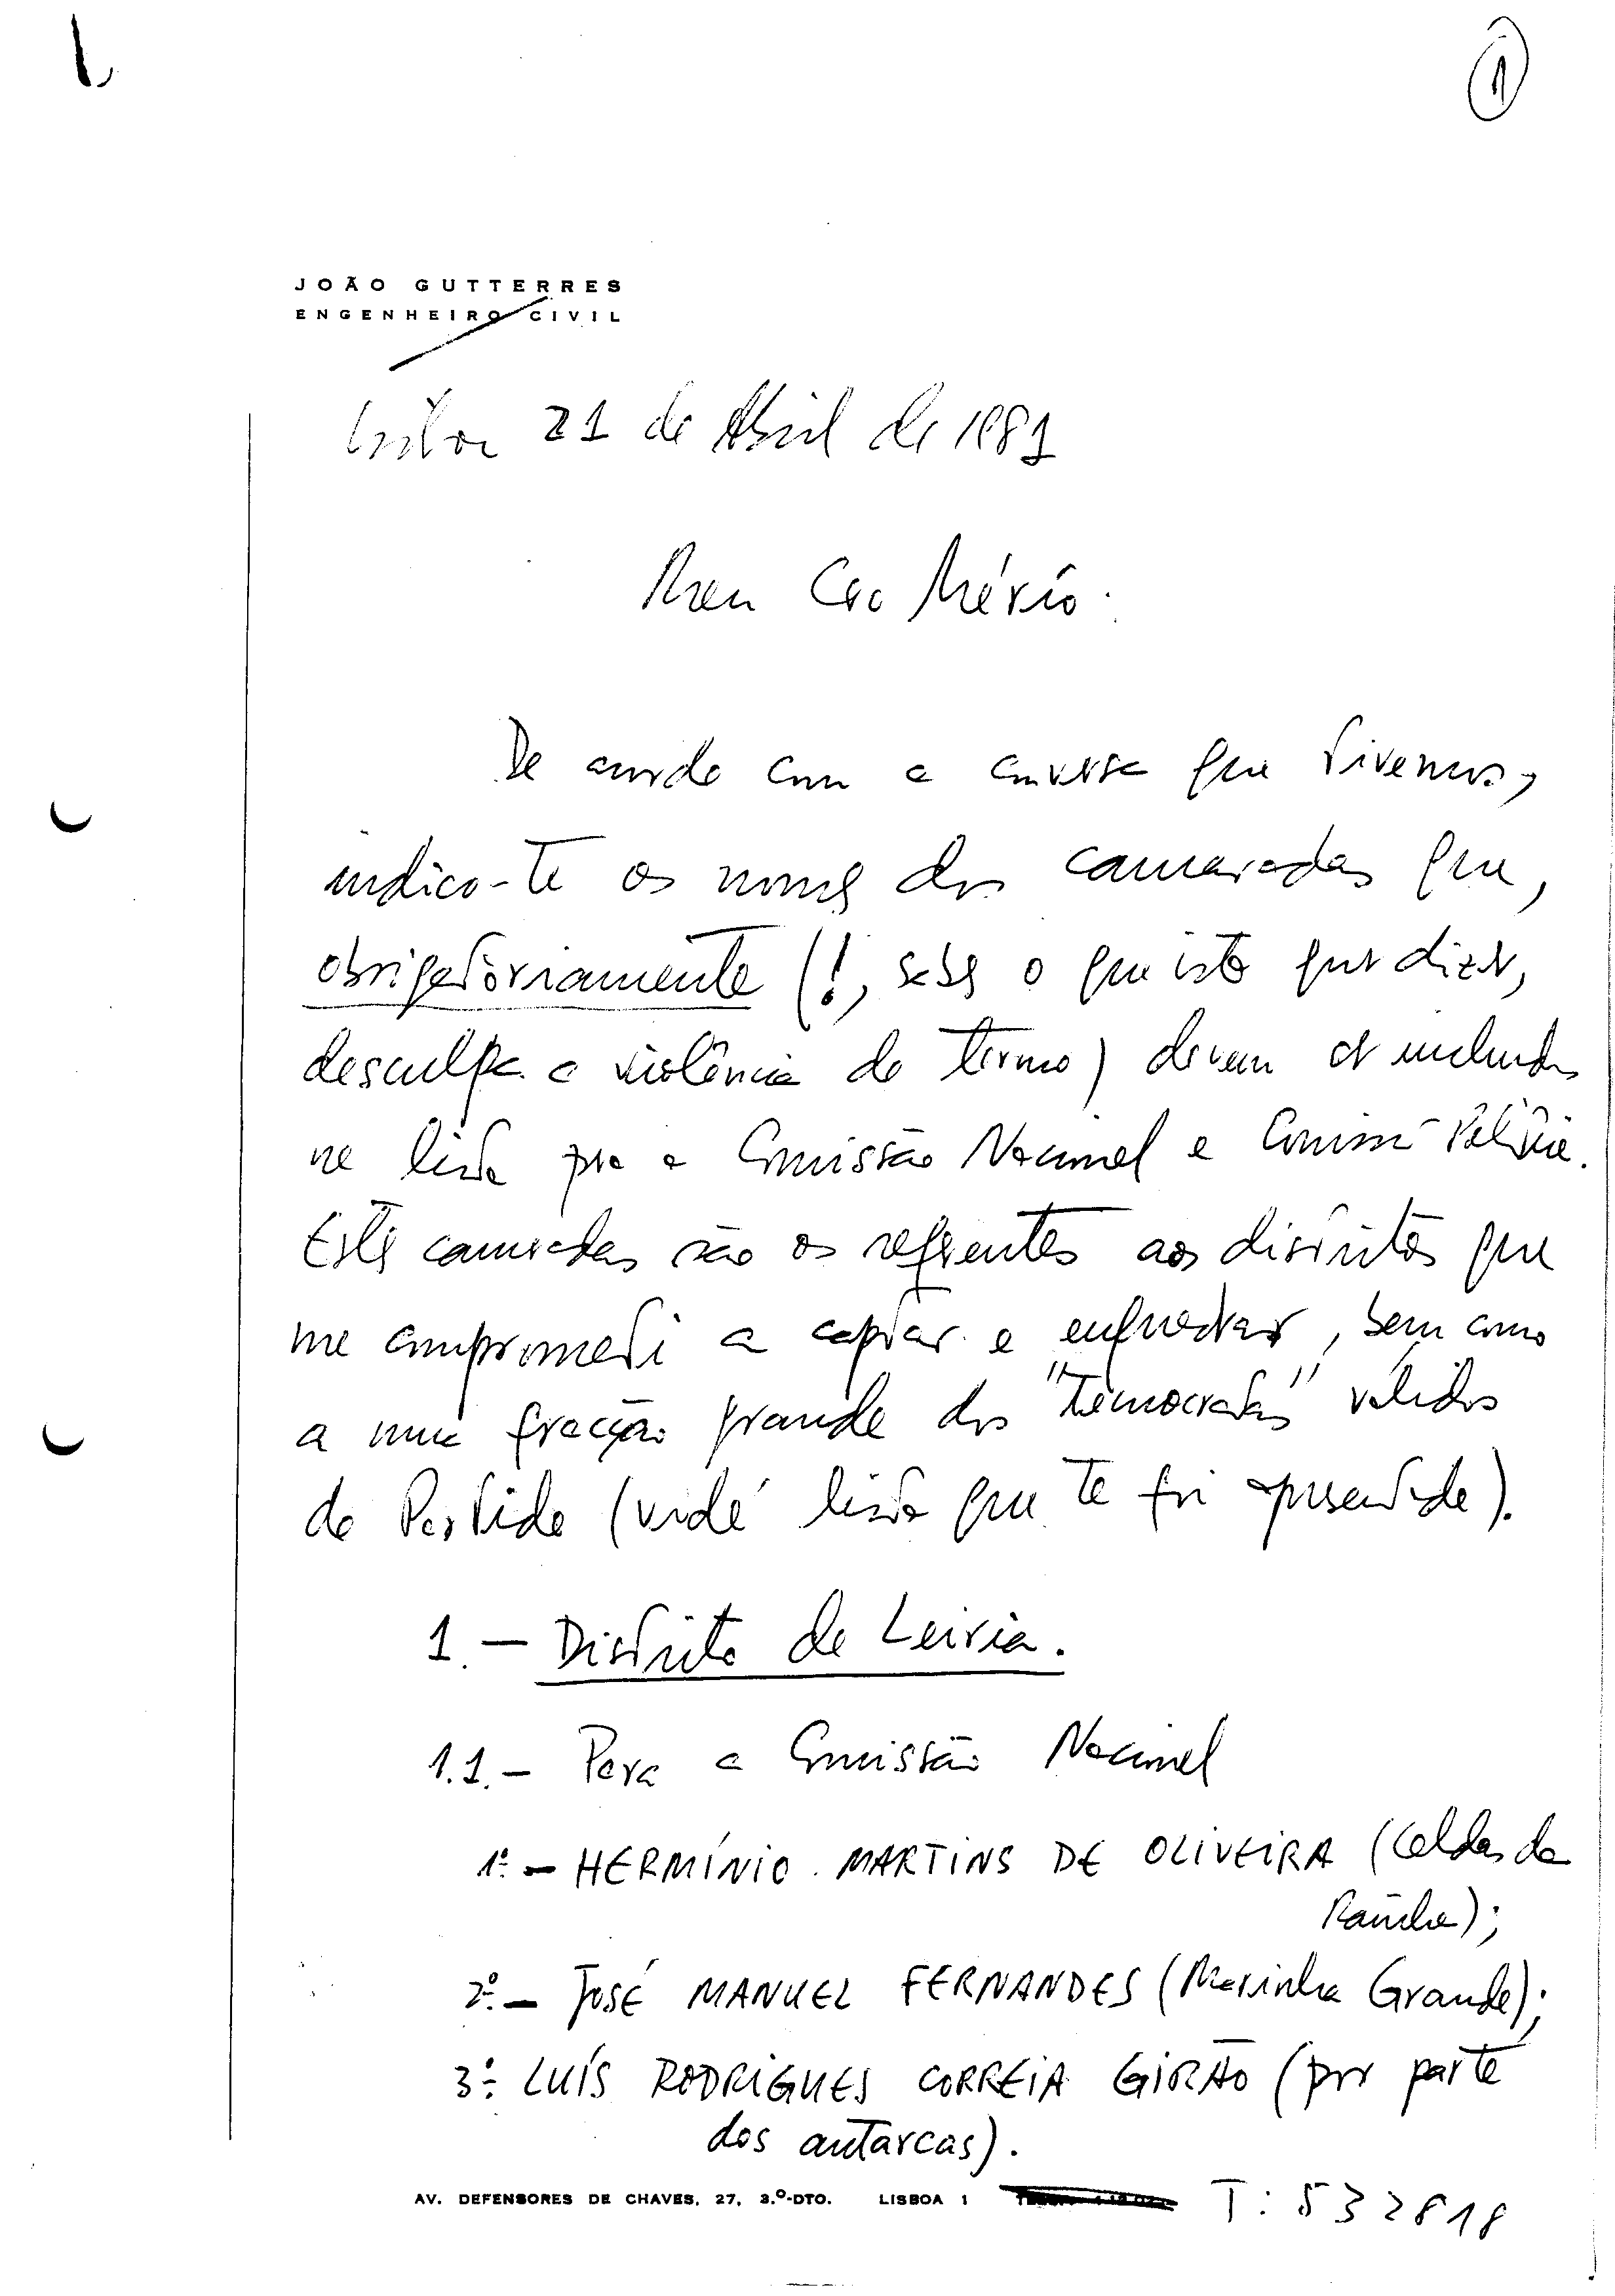 1
JOÃO GUTTERRES
ENGENHEIRO CIVIL
Lisboa 21 de Abril de 1981
Meu Caro Mário:
De acordo com a conversa que tivemos,
indico-te os nomes dos camaradas que,
obrigatoriamente (!, sabes o que isto quer dizer,
desculpa a violência do termo) devem ser incluidos
na lista para a Comissão Nacional e Comissão Política.
Estes camaradas são os referentes aos distritos que
me comprometi a captar e enquadrar, bem como
a uma fracção grande dos "Democratas" válidos
do Partido (vidé lista que te foi apresentada).
1. - Distrito de Leiria.
1.1. - Para a Comissão Nacional
1º. - HERMÍNIO MARTINS DE OLIVEIRA (Caldas da
Raínha);
2º. - JOSÉ MANUEL FERNANDES (Marinha Grande);
3º. LUÍS RODRIGUES CORREIA GIRÃO (por parte
dos autarcas).
AV. DEFENSORES DE CHAVES, 27, 3.º-DTO. LISBOA 1 T: 532818